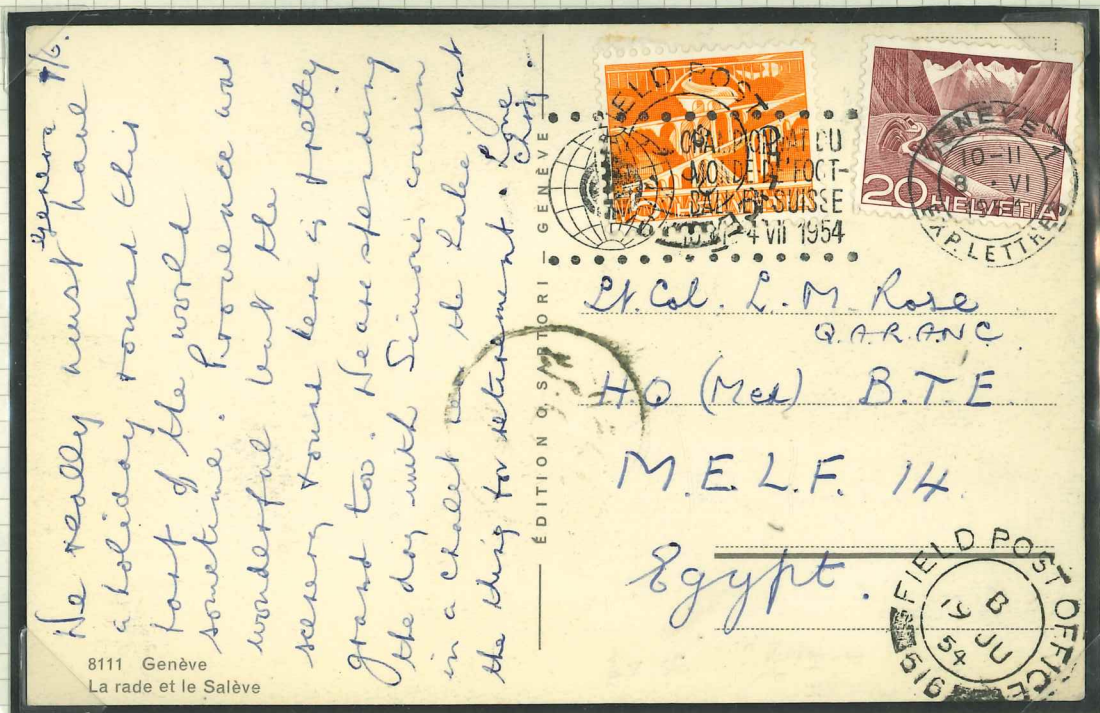 Geneva 7/6.
We really must have
a holiday round this
part of the world
sometime. Provence was
wonderful but the
scenery round here is pretty
grand too. We are spending
the day with Simone's cousin
in a chalet on the Lake. Just
the thing for retirement. Love
8111 Genève
La rade et le Salève
ÉDITION O. SARTORI — GENÈVE
FIELD POST
CHAMPIONNAT DU
MONDE DE FOOT-
BALL EN SUISSE
16 VI - 4 VII 1954
HELVETIA
20 HELVETIA
GENÈVE 1
10-11
8. VI
1954
EXP. LETTRES
Lt. Col. L. M. Rose
Q.A.R.A.N.C.
HQ (Med) B.T.E.
M.E.L.F. 14
Egypt.
FIELD POST OFFICE
B
19 JU
54
516